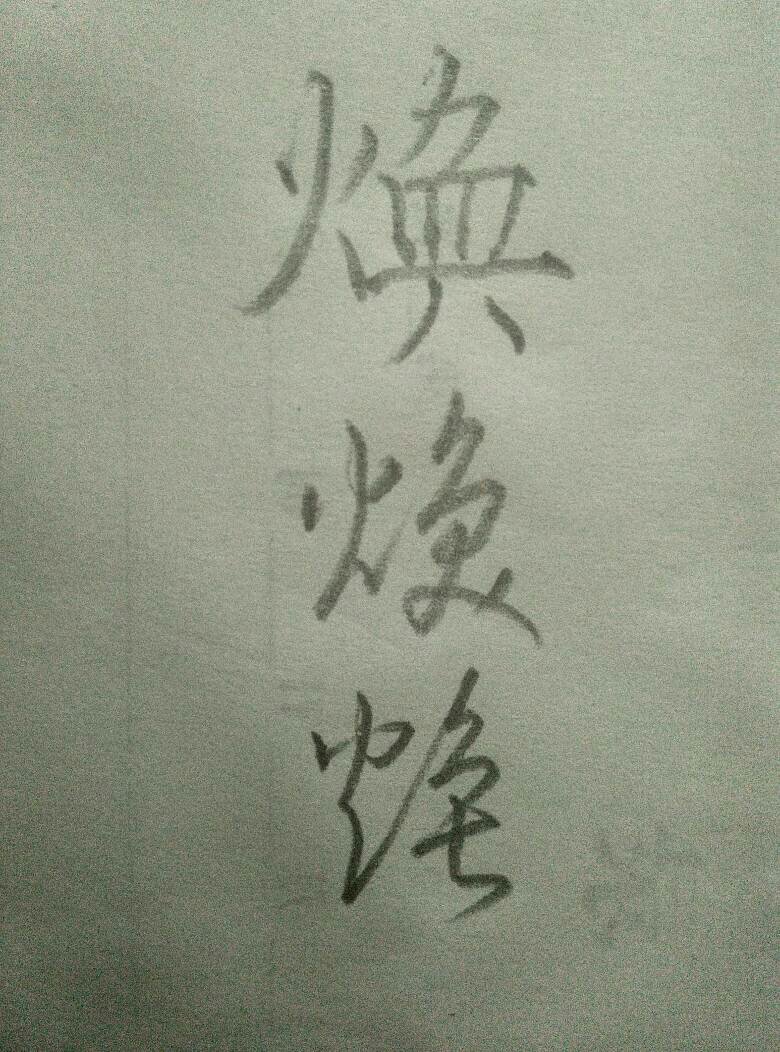 焕
焕
焕